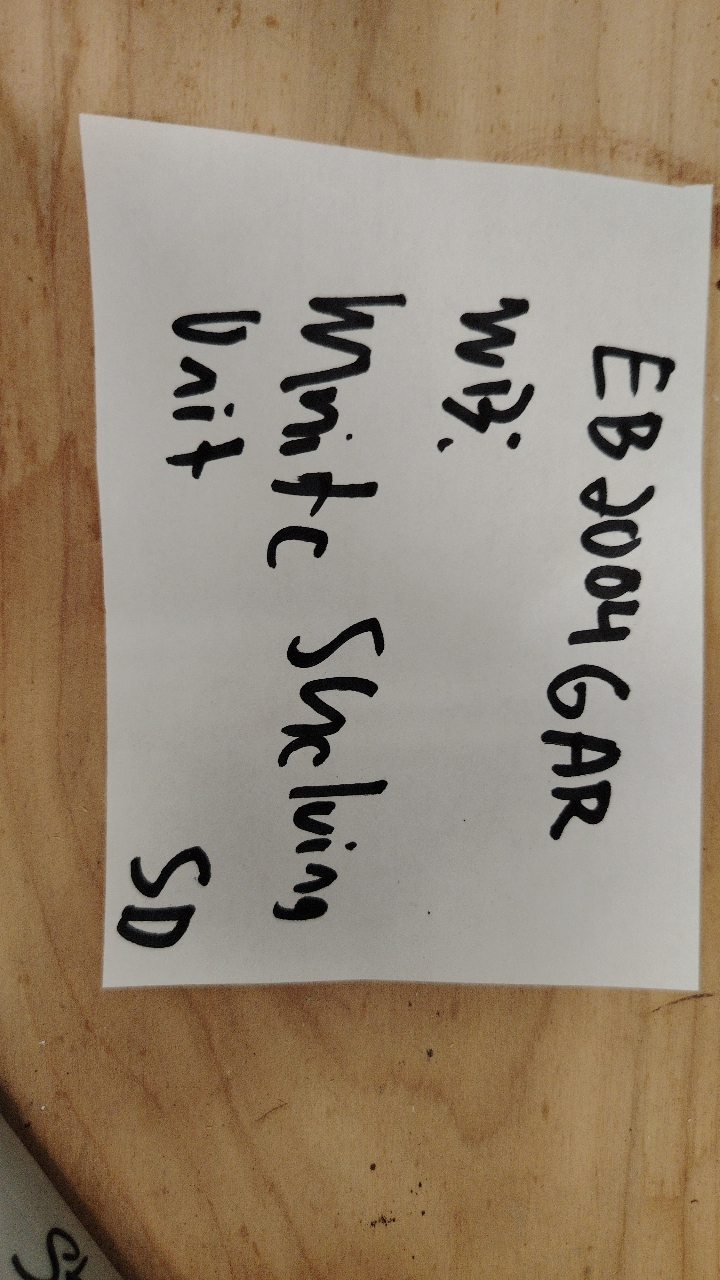 EB2004GAR
WB:
White Shelving
Unit
SD
St